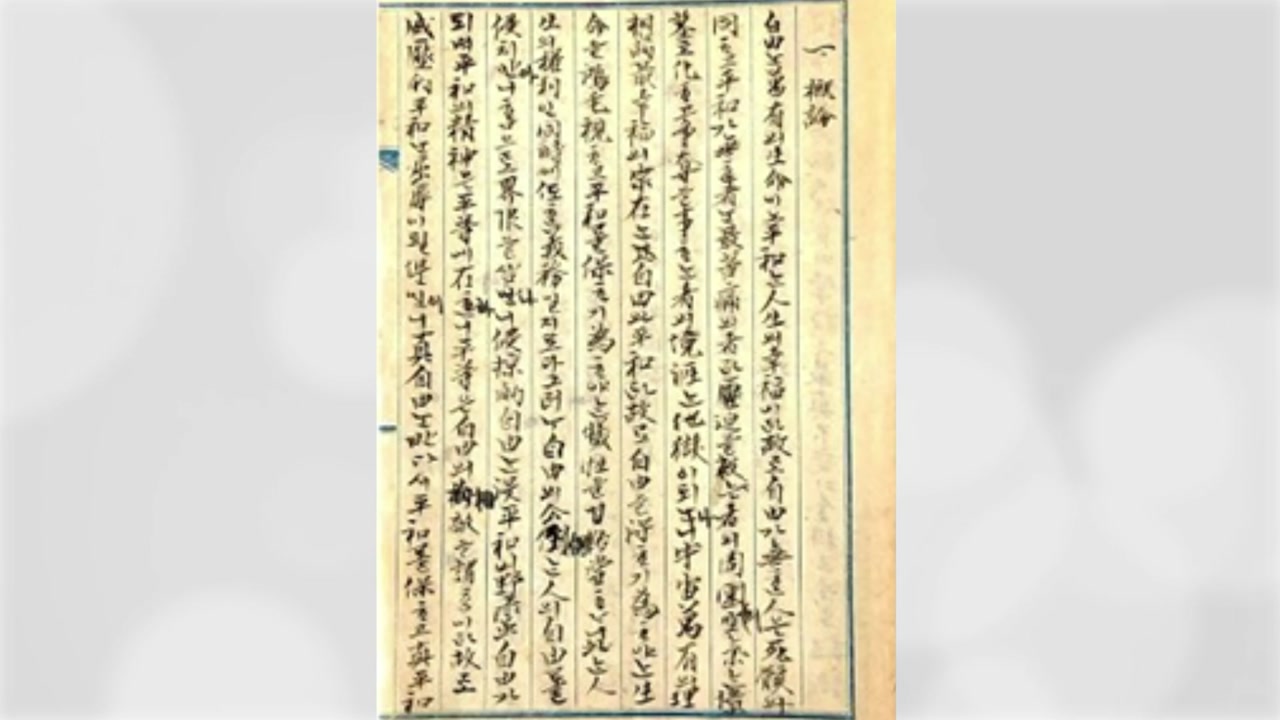 一. 概論
自由는萬有의生命이요平和는人生의幸福이라故로自由가無한人은死骸와
同하고平和가無한者는最苦痛의者라壓迫을被하는者의周圍의空氣는墳
墓로化하고爭奪을事하는者의境涯는地獄이되나니宇宙萬有의理
想的最幸福의實在는곧自由와平和라故로自由를得하기爲하야는生
命을鴻毛視하고平和를保하기爲하야는犧牲을甘飴嘗하나니此는人
生의權利인同時에또한義務일지로다그러나自由의公例는人의自由를
侵치아니함으로界限을삼나니侵掠的自由는沒平和의野蠻自由가
되며平和의精神은平等에在하니平等은自由의相敵을謂함이라故로
威壓的平和는屈辱이될뿐이니眞自由는반다시平和를保하고眞平和